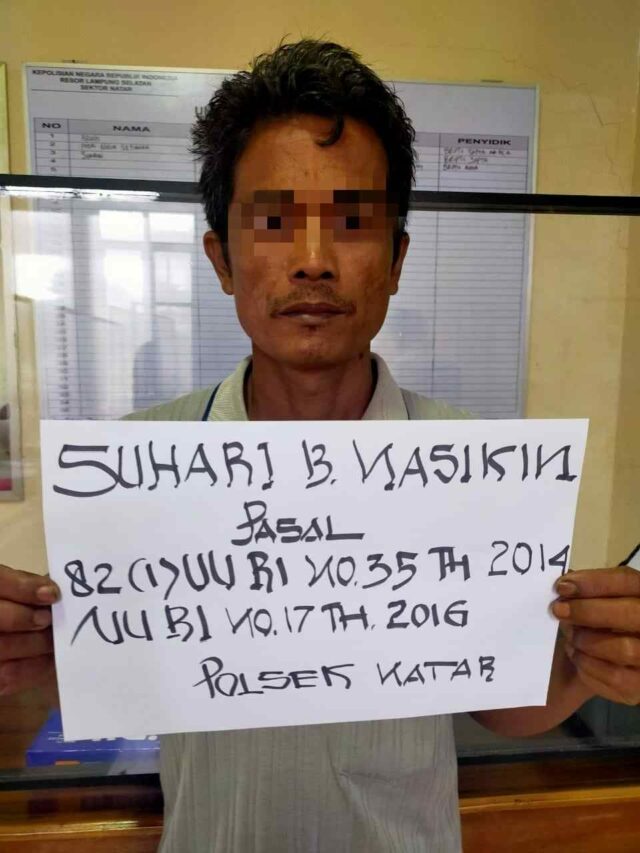 KEPOLISIAN NEGARA REPUBLIK INDONESIA
RESOR LAMPUNG SELATAN
SEKTOR NATAR
NO NAMA PENYIDIK
1
2
4
5
SUHARI B. NASIKIN
PASAL
82 (1) UU RI NO. 35 TH 2014
UU RI NO. 17 TH. 2016
POLSEK NATAR